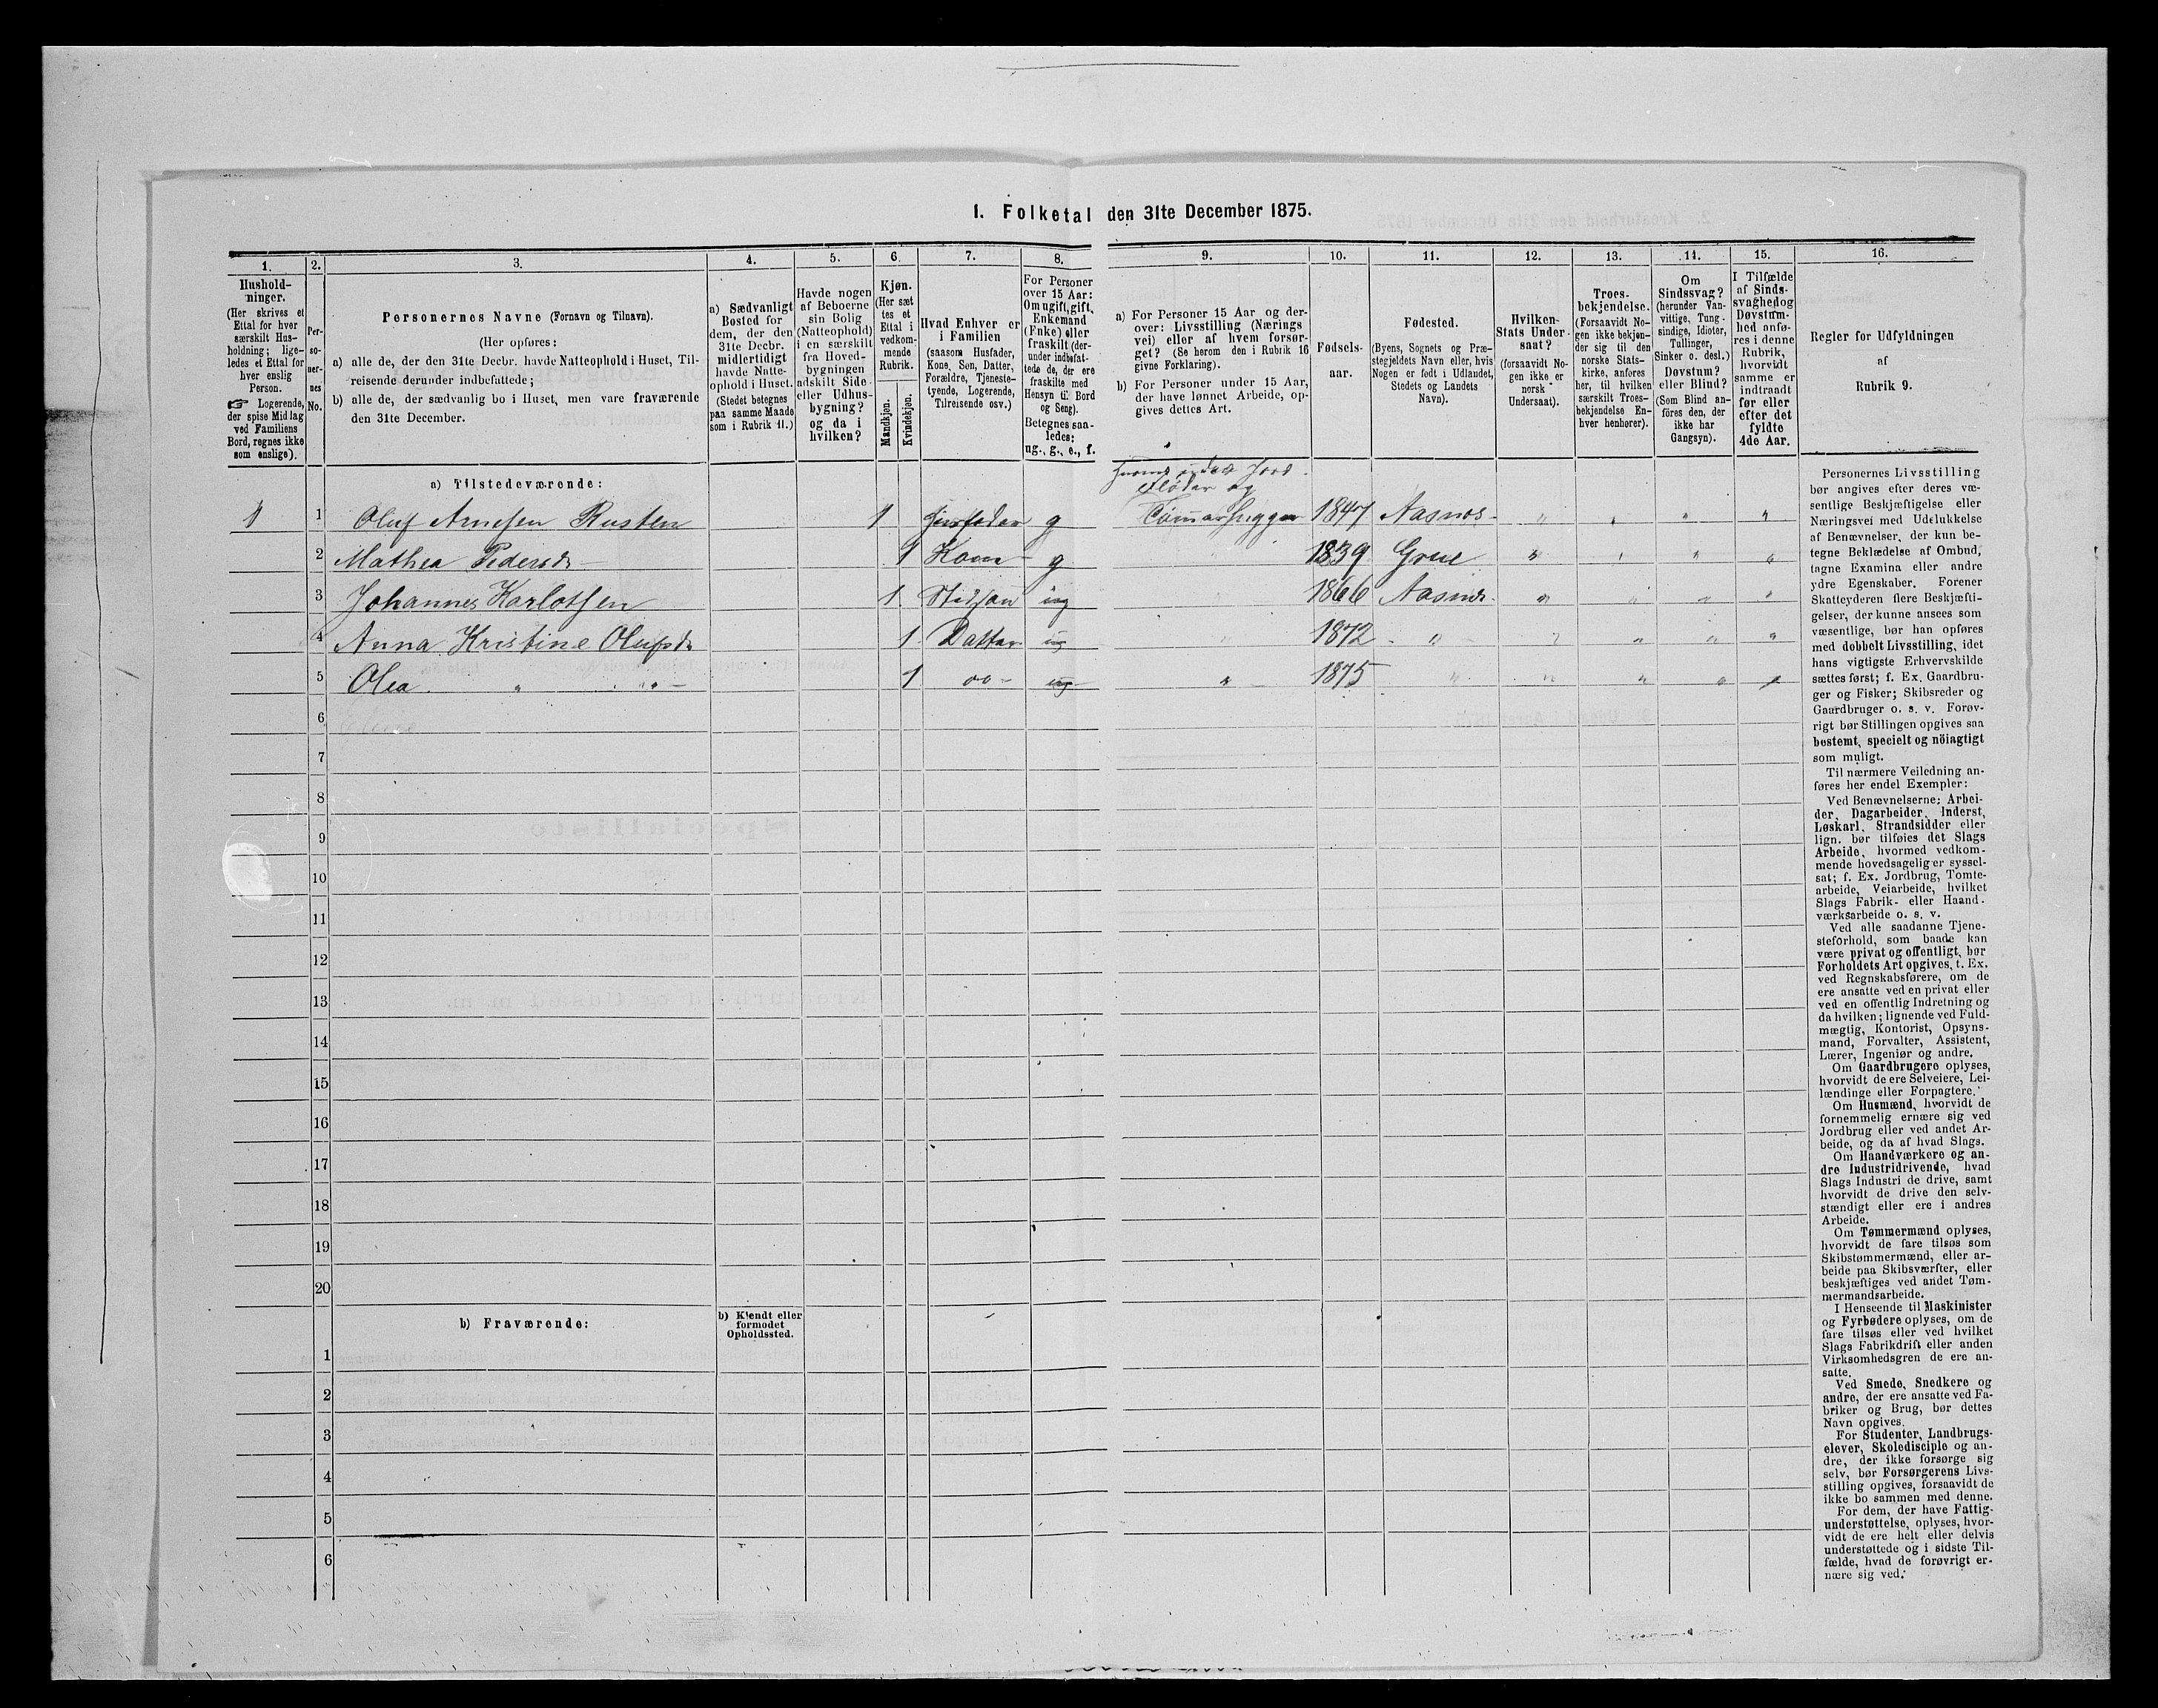 1. Folketal den 31te December 1875.
1.
Hushold-
ninger.
(Her skrives et
Ettal for hver
særskilt Hus-
holdning; lige-
ledes et Ettal for
hver enslig
Person.
☞ Logerende,
der spise Middag
ved Familiens
Bord, regnes ikke
som enslige).
2.
Per-
so-
ner-
nes
No.
3.
Personernes Navne (Fornavn og Tilnavn).
(Her opføres:
a) alle de, der den 31te Decbr. havde Natteophold i Huset, Til-
reisende derunder indbefattede;
b) alle de, der sædvanlig bo i Huset, men vare fraværende
den 31te December.
4.
a) Sædvanligt
Bosted for
dem, der den
31te Decbr.
midlertidigt
havde Natte-
ophold i Huset.
(Stedet betegnes
paa samme Maade
som i Rubrik 11.)
5.
Havde nogen
af Beboerne
sin Bolig
(Natteophold)
i en særskilt
fra Hoved-
bygningen
adskilt Side-
eller Udhus-
bygning?
og da i
hvilken?
6.
Kjøn.
(Her sæt
tes et
Ettal i
vedkom-
mende
Rubrik.
Mandkjøn.
Kvindekjøn.
7.
Hvad Enhver er
i Familien
(saasom Husfader,
Kone, Søn, Datter,
Forældre, Tjeneste-
tyende, Logerende,
Tilreisende osv.)
8.
For Personer
over 15 Aar:
Om ugift, gift,
Enkemand
(Enke) eller
fraskilt (der-
under indbefat-
tede de, der ere
fraskilte med
Hensyn til Bord
og Seng).
Betegnes saa-
ledes:
ug., g., e., f.
9.
a) For Personer 15 Aar og der-
over: Livsstilling (Nærings
vei) eller af hvem forsør-
get? (Se herom den i Rubrik 16
givne Forklaring).
b) For Personer under 15 Aar,
der have lønnet Arbeide, op-
gives dettes Art.
10.
Fødsels-
aar.
11.
Fødested.
(Byens, Sognets og Præ-
stegjeldets Navn eller, hvis
Nogen er født i Udlandet,
Stedets og Landets
Navn).
12.
Hvilken
Stats Under-
saat?
(forsaavidt No-
gen ikke er
norsk
Undersaat).
13.
Troes-
bekjendelse.
(Forsaavidt No-
gen ikke bekjen-
der sig til den
norske Stats-
kirke, anføres
her, til hvilken
særskilt Troes-
bekjendelse En-
hver henhører).
14.
Om
Sindssvag?
(herunder Van-
vittige, Tung-
sindige, Idioter,
Tullinger,
Sinker o. desl.)
Døvstum?
eller Blind?
(Som Blind an-
føres den, der
ikke har
Gangsyn).
15.
I Tilfælde
af Sinds-
svaghed og
Døvstum-
hed anfø-
res i denne
Rubrik,
hvorvidt
samme er
indtraadt
før eller
efter det
fyldte
4de Aar.
16.
Regler for Udfyldningen
af
Rubrik 9.
a) Tilstedeværende:
1 1 Oluf Arnesen Rusten 1 Husfader g Tømarhugger 1847 Aasnes " " " "
2 Mathea Pedersd 1 Kone g 1839 Grue " " " "
3 Johannes Karlotsen 1 Stedsøn ug 1866 Aasnes " " " "
4 Anna Kristine Olufsd 1 Datter ug " 1872 " " " " "
5 Olea " " 1 oo ug " 1875 " " " " "
6
7
8
9
10
11
12
13
14
15
16
17
18
19
20
b) Fraværende:
b) Kjendt eller
formodet
Opholdssted.
1
2
3
4
5
6
Personernes Livsstilling
bør angives efter deres væ-
sentlige Beskjæftigelse eller
Næringsvei med Udelukkelse
af Benævnelser, der kun be-
tegne Beklædelse af Ombud,
tagne Examina eller andre
ydre Egenskaber. Forener
Skatteyderen flere Beskjæfti-
gelser, der kunne ansees som
væsentlige, bør han opføres
med dobbelt Livsstilling, idet
hans vigtigste Erhvervskilde
sættes først; f. Ex. Gaardbru-
ger og Fisker; Skibsreder og
Gaardbruger o. s. v. Forøv-
rigt bør Stillingen opgives saa
bestemt, specielt og nöiagtigt
som muligt.
Til nærmere Veiledning an-
føres her endel Exempler:
Ved Benævnelserne: Arbei-
der, Dagarbeider, Inderst,
Løskarl, Strandsidder eller
lign. bør tilføies det Slags
Arbeide, hvormed vedkom-
mende hovedsagelig er syssel-
sat; f. Ex. Jordbrug, Tomte-
arbeide, Veiarbeide, hvilket
Slags Fabrik- eller Haand-
værksarbeide o. s. v.
Ved alle saadanne Tjene-
steforhold, som baade kan
være privat og offentligt, bør
Forholdets Art opgives, t. Ex.
ved Regnskabsførere, om de
ere ansatte ved en privat eller
ved en offentlig Indretning og
da hvilken; lignende ved Fuld-
mægtig, Kontorist, Opsyns-
mand, Forvalter, Assistent,
Lærer, Ingeniør og andre.
Om Gaardbrugere oplyses,
hvorvidt de ere Selveiere, Lei-
lændinge eller Forpagtere.
Om Husmænd, hvorvidt de
fornemmelig ernære sig ved
Jordbrug eller ved andet Ar-
beide, og da af hvad Slags.
Om Haandværkere og an-
dre Industridrivende, hvad
Slags Industri de drive, samt
hvorvidt de drive den selv-
stændigt eller ere i andres
Arbeide.
Om Tømmermænd oplyses,
hvorvidt de fare tilsøs som
Skibstømmermænd, eller ar-
beide paa Skibsværfter, eller
beskjæftiges ved andet Tøm-
mermandsarbeide.
I Henseende til Maskinister
og Fyrbødere oplyses, om de
fare tilsøs eller ved hvilket
Slags Fabrikdrift eller anden
Virksomhedsgren de ere an-
satte.
Ved Smede, Snedkere og
andre, der ere ansatte ved Fa-
briker og Brug, bør dettes
Navn opgives.
For Studenter, Landbrugs-
elever, Skoledisciple og an-
dre, der ikke forsørge sig
selv, bør Forsørgerens Livs-
stilling opgives, forsaavidt de
ikke bo sammen med denne.
For dem, der have Fattig-
understøttelse, oplyses, hvor-
vidt de ere helt eller delvis
understøttede og i sidste Til-
fælde, hvad de forøvrigt er-
nære sig ved.